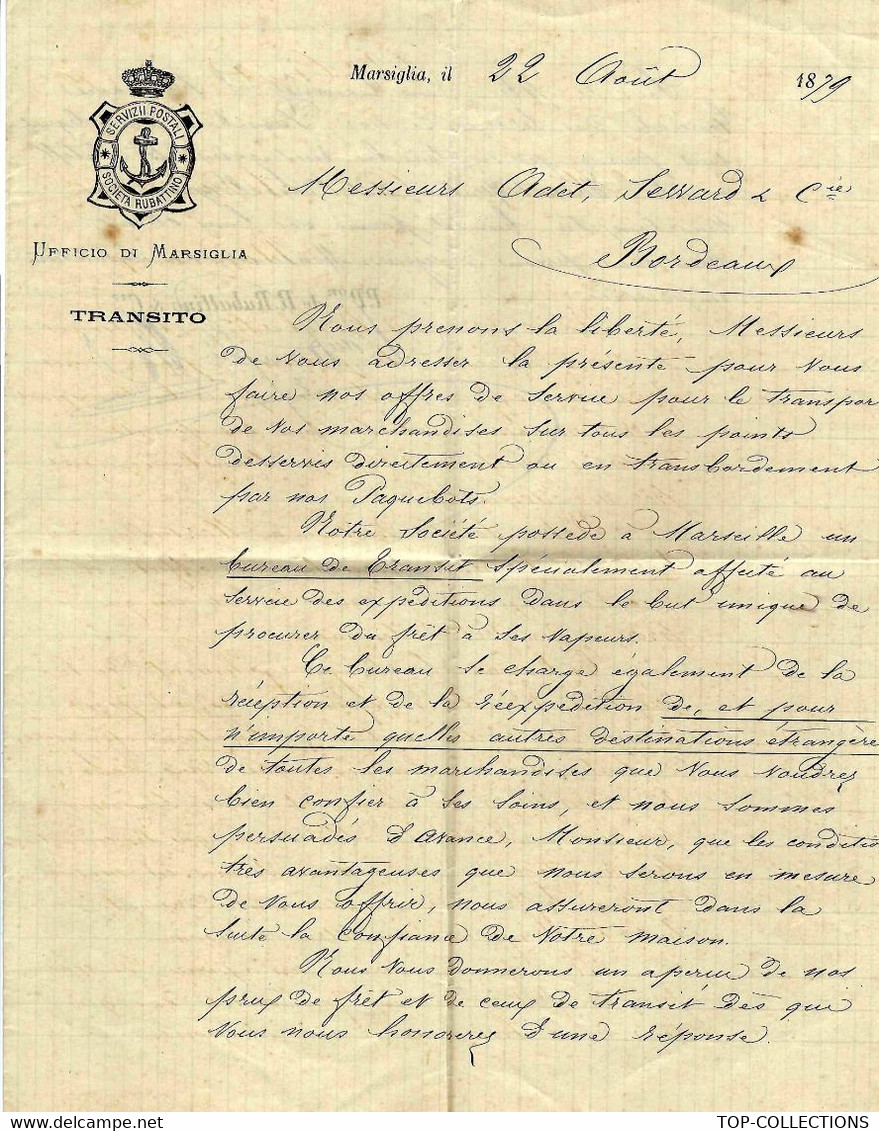 Marsiglia, il 22 Août 1879
SERVIZII POSTALI
SOCIETÀ RUBATTINO
UFFICIO DI MARSIGLIA
TRANSITO
Messieurs Adet, Seward & Cie
Bordeaux
Nous prenons la liberté, Messieurs
de Vous adresser la présente pour Vous
faire nos offres de Service pour le transpor
de Vos marchandises sur tous les points
desservis directement ou en transbordement
par nos Paquebots.
Notre Société possède à Marseille un
bureau de transit spécialement affecté au
Service des expéditions dans le but unique de
procurer du frêt à Ses Vapeurs.
Ce bureau se charge également de la
réception et de la réexpédition de, et pour
n'importe quelles autres destinations étrangère
de toutes les marchandises que Vous Voudrez
bien confier à Ses Soins, et nous sommes
persuadés d'avance, Monsieur, que les conditio
très avantageuses que nous serons en mesure
de Vous offrir, nous assureront dans la
suite la confiance de Votre maison.
Nous Vous donnerons un aperçu de nos
prix de frêt et de ceux de transit dès que
Vous nous honorerez d'une réponse.
TOP-COLLECTIONS